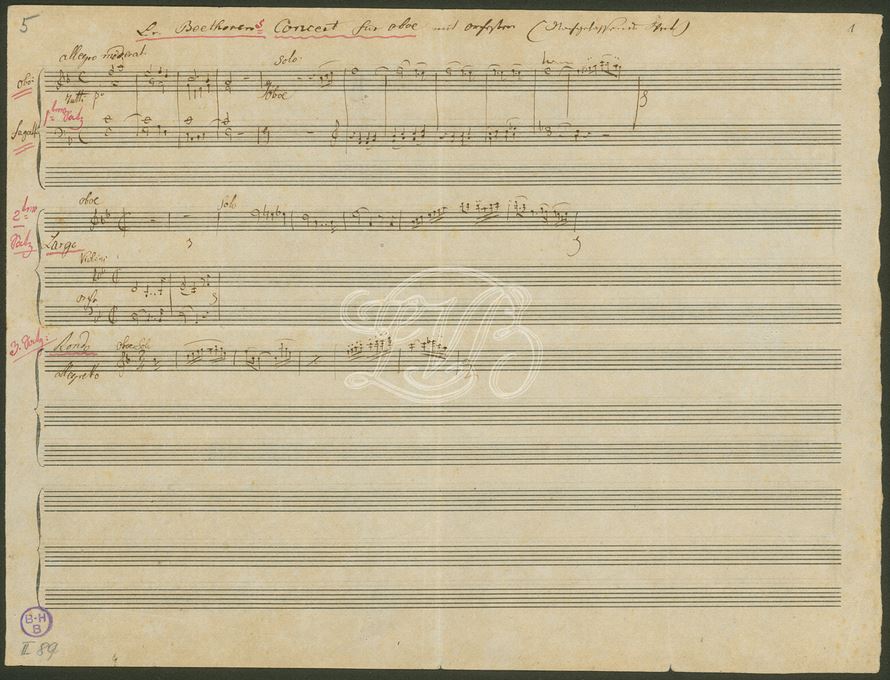 5
L. v. Beethovens Concert für oboe mit orchester (Nachgelassenes Werk) 1
allegro moderat. Solo
oboe
tutti p oboe
1ter Satz
fagott
oboe Solo
2ter Satz
Largo
3
3
Violini
3
3. Satz: Rondo oboe Solo
allegretto
LVB
B-H
B
II 89